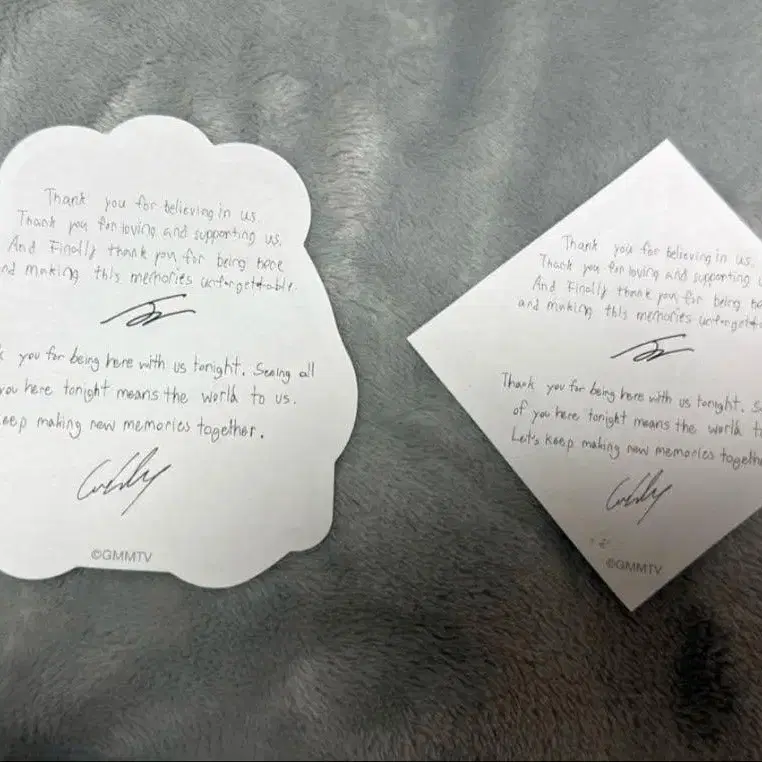 Thank you for believing in us.
Thank you for loving and supporting us.
And Finally thank you for being here
and making this memories unforgettable.
you for being here with us tonight. Seeing all
you here tonight means the world to us.
keep making new memories together.
©GMMTV
Thank you for believing in us.
Thank you for loving and supporting
And Finally thank you for being
and making this memories
Thank you for being here with us tonight.
of you here tonight means the world
Let's keep making new memories
©GMMTV